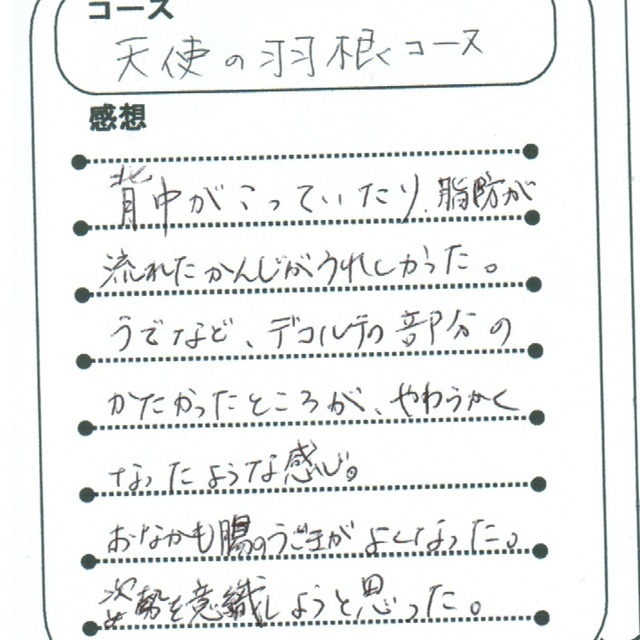 コース
天使の羽根コース
感想
背中がこっていたり、脂肪が
流れたかんじがうれしかった。
うでなど、デコルテの部分の
かたかったところが、やわらかく
なったような感じ。
おなかも腸のうごきがよくなった。
姿勢を意識しようと思った。